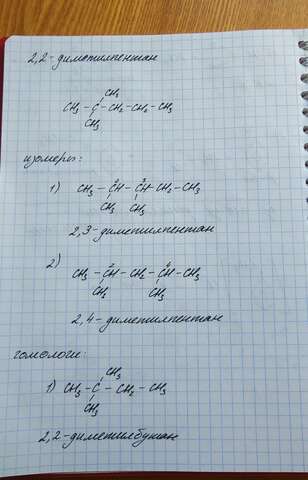 2,2-диметилпентан
CH₃
CH₃-C-CH₂-CH₂-CH₃
CH₃
изомеры:
1) CH₃-²CH-³CH-CH₂-CH₃
CH₃ CH₃
2,3-диметилпентан
2) CH₃-²CH-CH₂-⁴CH-CH₃
CH₃ CH₃
2,4-диметилпентан
гомологи:
CH₃
1) CH₃-C-CH₂-CH₃
CH₃
2,2-диметилбутан